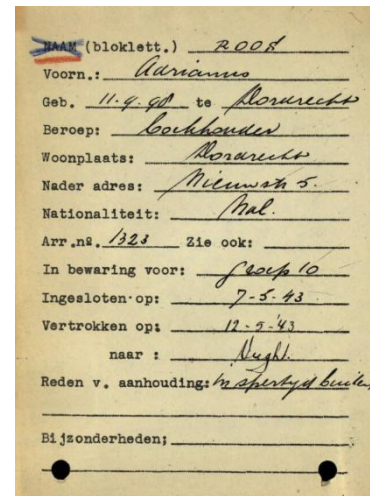 NAAM (bloklett.) ROOS
Voorn.: Adrianus
Geb. 11.9.98 te Dordrecht
Beroep: Boekhouder
Woonplaats: Dordrecht
Nader adres: Nieuwstr 5.
Nationaliteit: Ned.
Arr.nº. 1323 Zie ook:
In bewaring voor: groep 10
Ingesloten op: 7-5-43
Vertrokken op: 12-5-'43
naar : Vught.
Reden v. aanhouding: In spertijd buiten
Bijzonderheden;